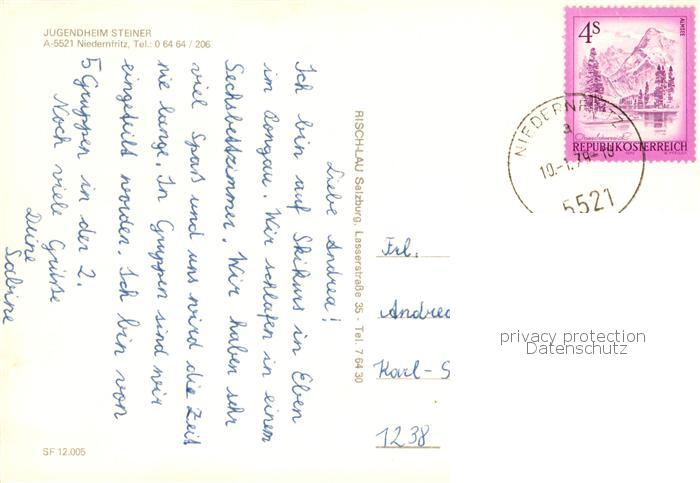 JUGENDHEIM STEINER
A-5521 Niedernfritz, Tel.: 0 64 64 / 206
Liebe Andrea!
Ich bin auf Skikurs in Eben
im Pongau. Wir schlafen in einem
Sechsbettzimmer. Wir haben sehr
viel Spaß und uns wird die Zeit
nie lang. In Gruppen sind wir
eingeteilt worden. Ich bin von
5 Gruppen in der 2.
Noch viele Grüße
Deine
Sabine
RISCH-LAU Salzburg, Lasserstraße 35 - Tel. 7 64 30
4S
ALMSEE
Oberösterreich
REPUBLIK ÖSTERREICH
NIEDERNFRITZ
a
10.-1.79-18
5521
Frl.
Andrea
Karl-S
1238
privacy protection
Datenschutz
SF 12.005